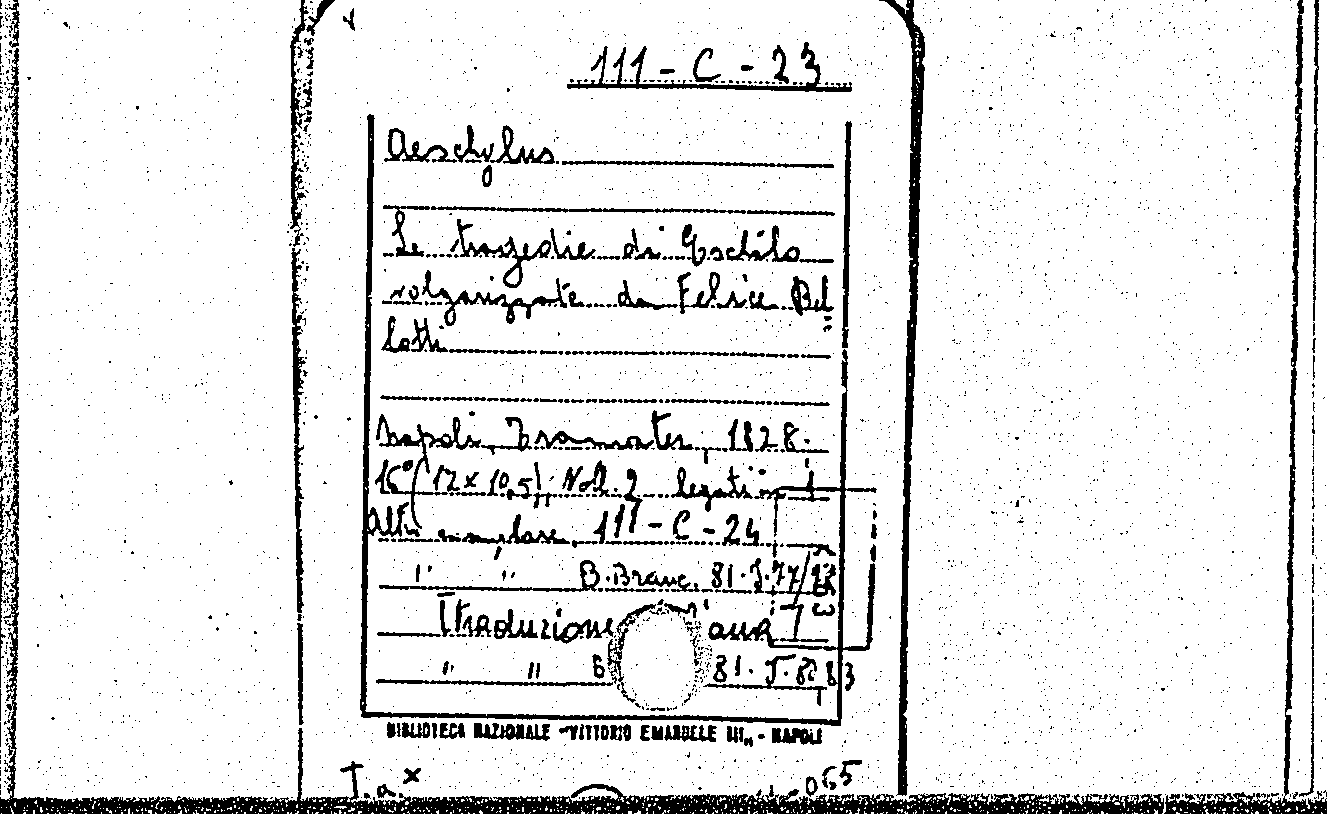 111 - C - 23
Aeschylus
Le tragedie di Eschilo
volgarizzate da Felice Bel
lotti
Napoli, Tramater, 1828.
16° (12 x 10,5); Voll. 2 legati in 1
Altro esemplare, 111 - C - 24
" " B. Branc. 81. J. 77/
[traduzione
" " B 81. J. 83
BIBLIOTECA NAZIONALE - VITTORIO EMANUELE III„ - NAPOLI
T.a x 055